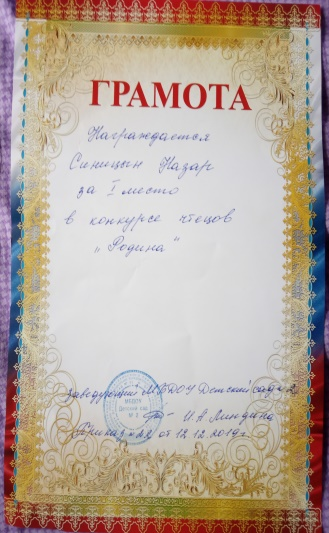 ГРАМОТА
Награждается
Синицын Назар
за I место
в конкурсе чтецов
„Родина“
Заведующий МБДОУ Детский сад №2
И.А.
Приказ №22 от 12.12.2019г
МБДОУ
Детский сад
№ 2